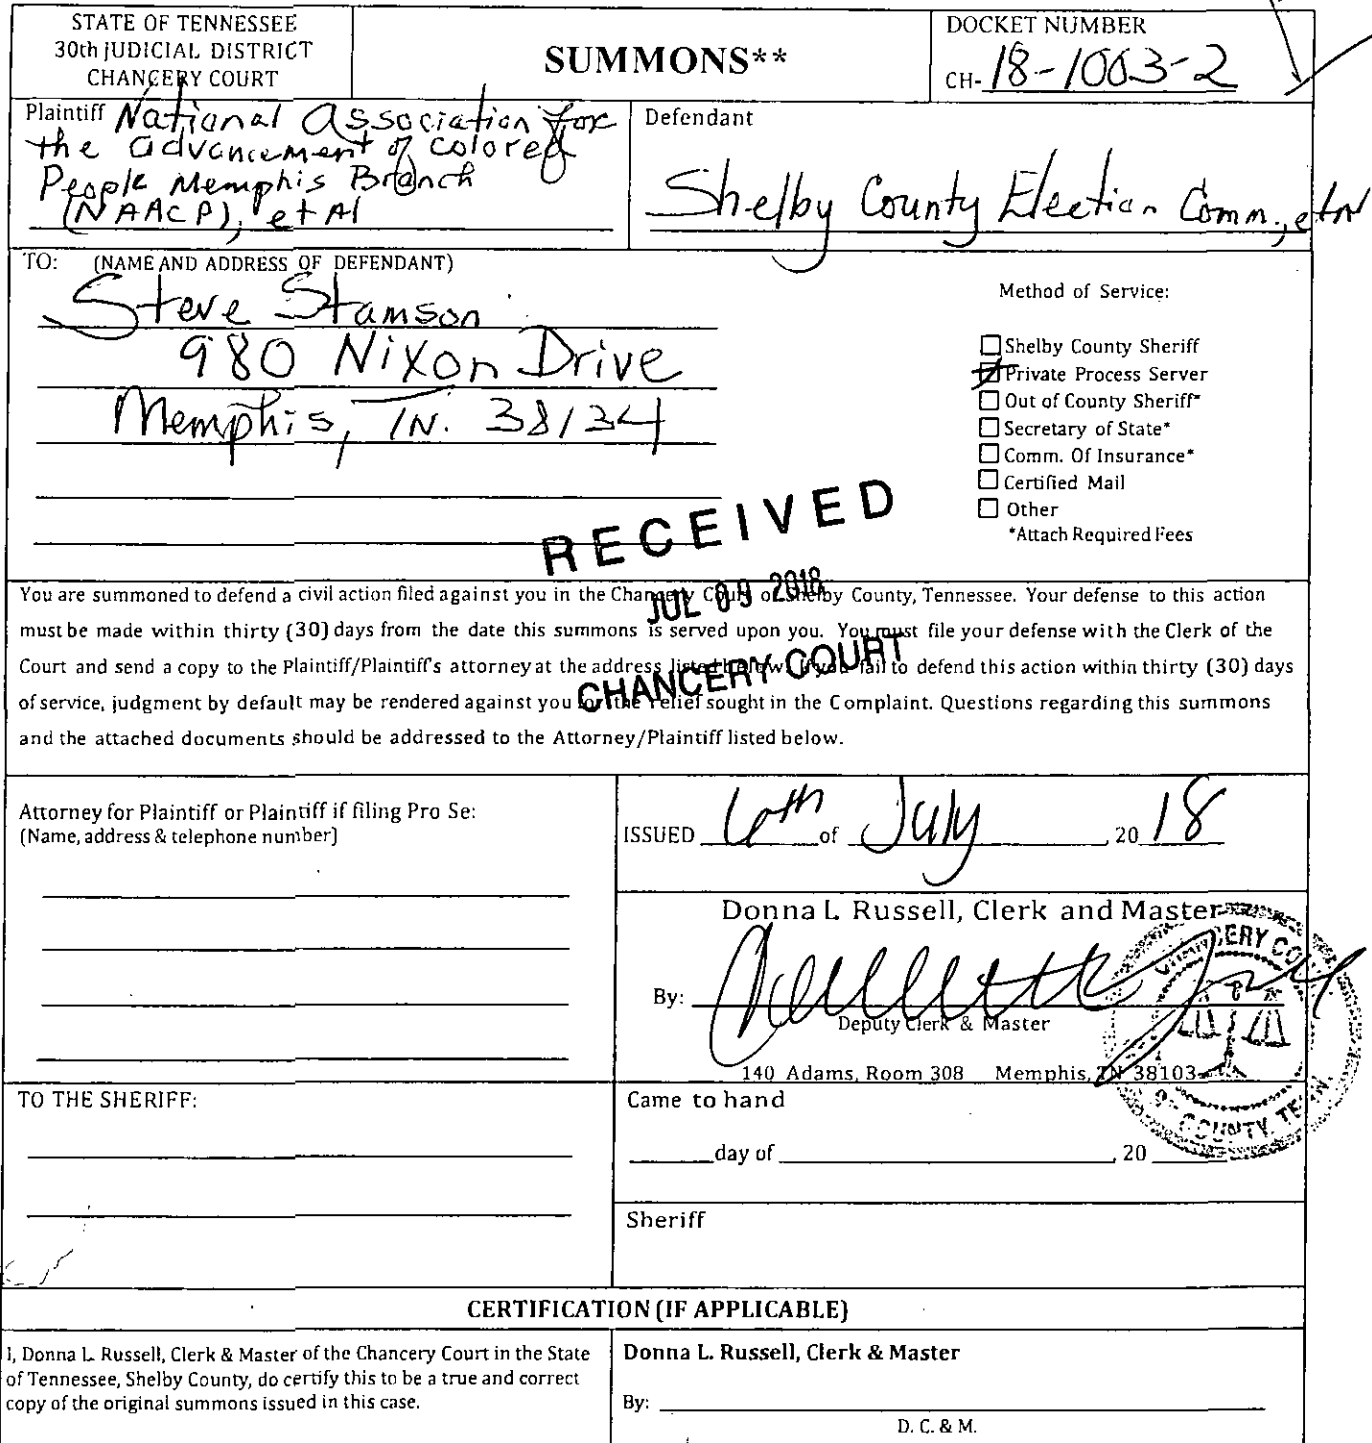 STATE OF TENNESSEE
30th JUDICIAL DISTRICT
CHANCERY COURT
SUMMONS**
DOCKET NUMBER
CH- 18-1003-2
Plaintiff National Association for
the advancement of colored
People Memphis Branch
(NAACP), et Al
Defendant
Shelby County Election Comm., et al
TO: (NAME AND ADDRESS OF DEFENDANT)
Steve Stamson
980 Nixon Drive
Memphis, TN. 38134
Method of Service:
Shelby County Sheriff
Private Process Server
Out of County Sheriff*
Secretary of State*
Comm. Of Insurance*
Certified Mail
Other
*Attach Required Fees
RECEIVED
JUL 09 2018
CHANCERY COURT
You are summoned to defend a civil action filed against you in the Chancery Court of Shelby County, Tennessee. Your defense to this action
must be made within thirty (30) days from the date this summons is served upon you. You must file your defense with the Clerk of the
Court and send a copy to the Plaintiff/Plaintiff's attorney at the address listed below. If you fail to defend this action within thirty (30) days
of service, judgment by default may be rendered against you for the relief sought in the Complaint. Questions regarding this summons
and the attached documents should be addressed to the Attorney/Plaintiff listed below.
Attorney for Plaintiff or Plaintiff if filing Pro Se:
(Name, address & telephone number)
ISSUED 6th of July, 20 18
Donna L. Russell, Clerk and Master
By:
Deputy Clerk & Master
140 Adams, Room 308 Memphis, TN 38103
CHANCERY CO
COUNTY, TENN.
TO THE SHERIFF:
Came to hand
day of , 20
Sheriff
CERTIFICATION (IF APPLICABLE)
I, Donna L. Russell, Clerk & Master of the Chancery Court in the State
of Tennessee, Shelby County, do certify this to be a true and correct
copy of the original summons issued in this case.
Donna L. Russell, Clerk & Master
By:
D. C. & M.